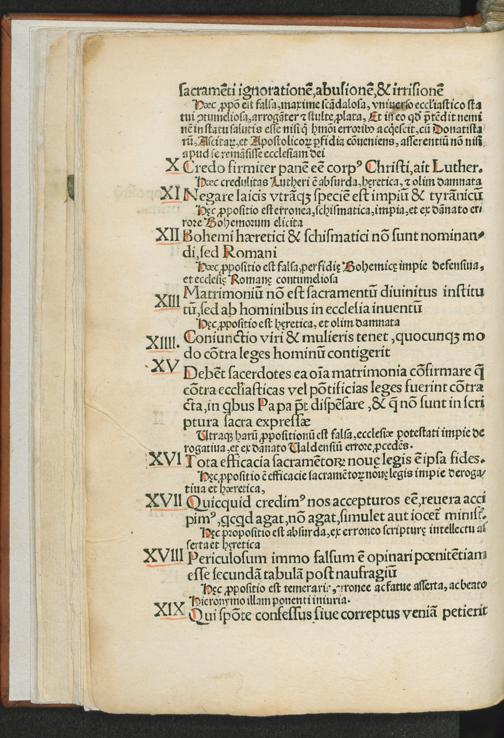 sacramẽti ignorationẽ, abusionẽ, & irrisionẽ
Hæc ꝓpõ est falsa, maxime scãdalosa, vniuerso eccliastico sta
tui ꝯtumeliosa, arrogãter & stulte ꝓlata, Et is eo qd p̃tẽdit nemi
nẽ in statu salutis esse nisi q̃ hmõi erroribꝰ acq̃escit, cũ Donatista
rũ, Ascitaꝝ, et Apostolicoꝝ ꝑfidia cõueniens, asserentiũ nõ nisi
apud se remãsisse ecclesiam dei
X Credo firmiter panẽ eẽ corpꝰ Christi, ait Luther.
Hæc credulitas Lutheri ẽ absurda, hęretica, & olim damnata
XI Negare laicis vtrãqꝫ speciẽ est impiũ & tyrãnicũ
Hęc ꝓpositio est erronea, schismatica, impia, et ex dãnato er-
rore Bohemorum elicita
XII Bohemi hæretici & schismatici nõ sunt nominan-
di, sed Romani
Hæc ꝓpositio est falsa, perfidię Bohemicę impie defensiua,
et ecclesię Romanę contumeliosa
XIII Matrimoniũ nõ est sacramentũ diuinitus institu
tũ, sed ab hominibus in ecclelia inuentũ
Hęc ꝓpositio est hęretica, et olim damnata
XIIII. Coniunctio viri & mulieris tenet, quocunqꝫ mo
do cõtra leges hominũ contigerit
XV Debẽt sacerdotes ea oĩa matrimonia cõfirmare q̃
cõtra eccl̃iasticas vel põtificias leges fuerint cõtra
cta, in qbus Papa p̃t dispẽsare, & q̃ nõ sunt in scri
ptura sacra expressæ
Utraqꝫ harũ ꝓpositionũ est falsa, ecclesiæ potestati impie de
rogatiua, et ex dãnato Ualdensiũ errore ꝓcedẽs.
XVI Tota efficacia sacramẽtoꝝ nouę legis ẽ ipsa fides.
Hęc ꝓpositio ẽ efficacie sacramẽtoꝝ nouę legis impie deroga-
tiua et hæretica,
XVII Quicquid credimꝰ nos accepturos eẽ, reuera acci
pimꝰ, qcqd agat, nõ agat, simulet aut iocet̃ minist̃.
Hęc propositio est absurda, ex erroneo scripturę intellectu as
serta et hęretica
XVIII Periculosum immo falsum ẽ opinari pœnitẽtiam
esse secundã tabulã post naufragiũ
Hęc ꝓpositio est temeraria, erronee ac fatue asserta, ac beato
Hieronymo illam ponenti iniuria.
XIX Qui spõte confessus siue correptus veniã petierit